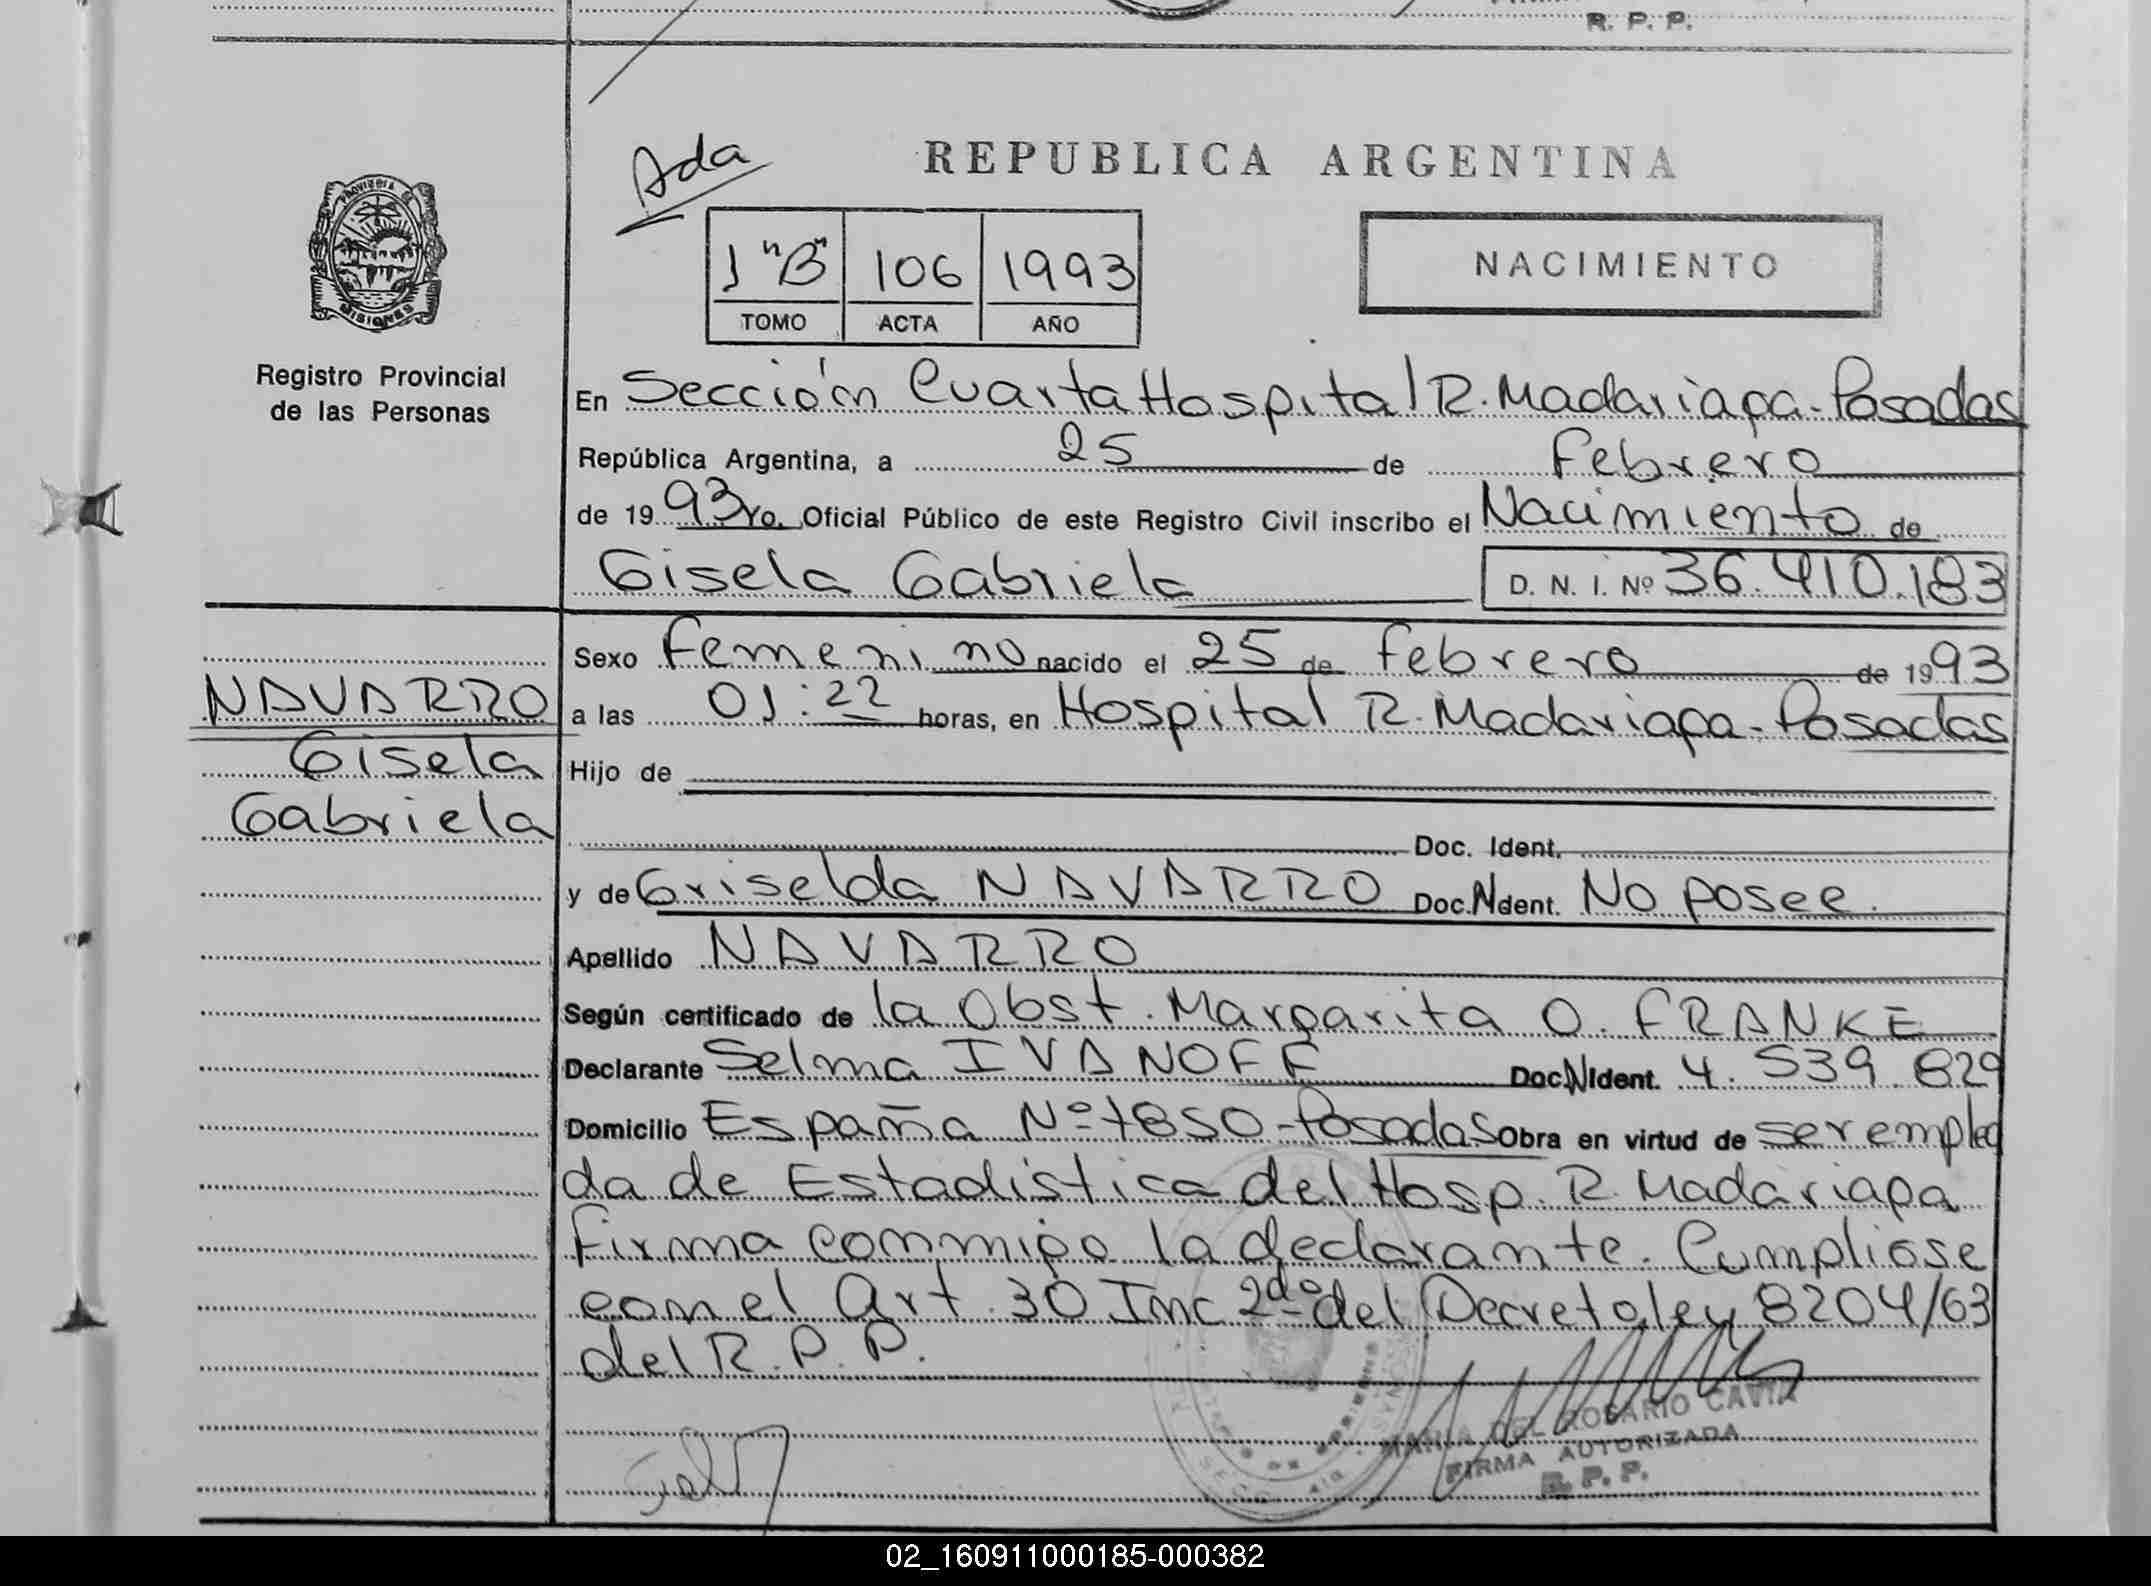 R. P. P.
Ada
REPUBLICA ARGENTINA
PROVINCIA DE
MISIONES
1 "B" 106 1993
TOMO ACTA AÑO
NACIMIENTO
Registro Provincial
de las Personas
En Sección Cuarta Hospital R. Madariaga - Posadas
República Argentina, a 25 de Febrero
de 19 93 yo, Oficial Público de este Registro Civil inscribo el Nacimiento de
Gisela Gabriela D. N. I. Nº 36.410.183
Sexo Femenino nacido el 25 de febrero de 19 93
NAVARRO
a las 01:22 horas, en Hospital R. Madariaga - Posadas
Gisela
Hijo de
Gabriela
Doc. Ident.
y de Griselda NAVARRO Doc. N Ident. No posee.
Apellido NAVARRO
Según certificado de la Obst. Margarita O. FRANKE
Declarante Selma IVANOFF Doc. N Ident. 4.539.829
Domicilio España Nº 1850 - Posadas Obra en virtud de ser emplea
da de Estadística del Hosp. R. Madariaga
Firma conmigo la declarante. Cumpliose
con el Art. 30 Inc 2do del Decreto ley 8204/63
del R.P.P.
MARIA DEL ROSARIO CAVIA
FIRMA AUTORIZADA
R. P. P.
02_160911000185-000382